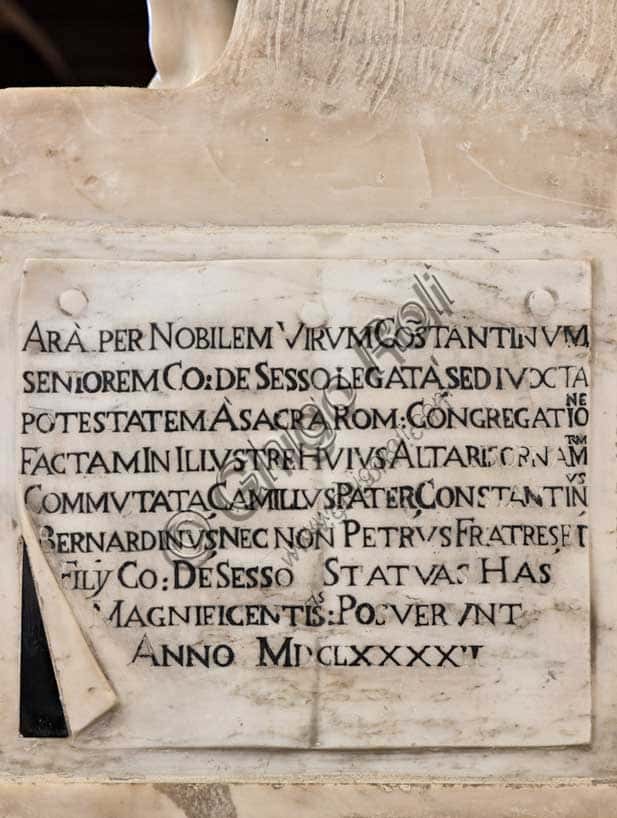 ARÃ PER NOBILEM VIRVM COSTANTINVM
SENIOREM CO: DE SESSO LEGATÃ SED IVXTA
POTESTATEM À SACRA ROM: CONGREGATIONE
FACTAM IN ILLVSTRE HVIVS ALTARIS
COMMVTATÃ CAMILLVS PATER, CONSTANTINVS
BERNARDINVS NEC NON PETRVS FRATRES ET
FILY CO: DE SESSO STATVAS HAS
MAGNIFICENTISAS: POSVERVNT
ANNO
© Ghigo Roli